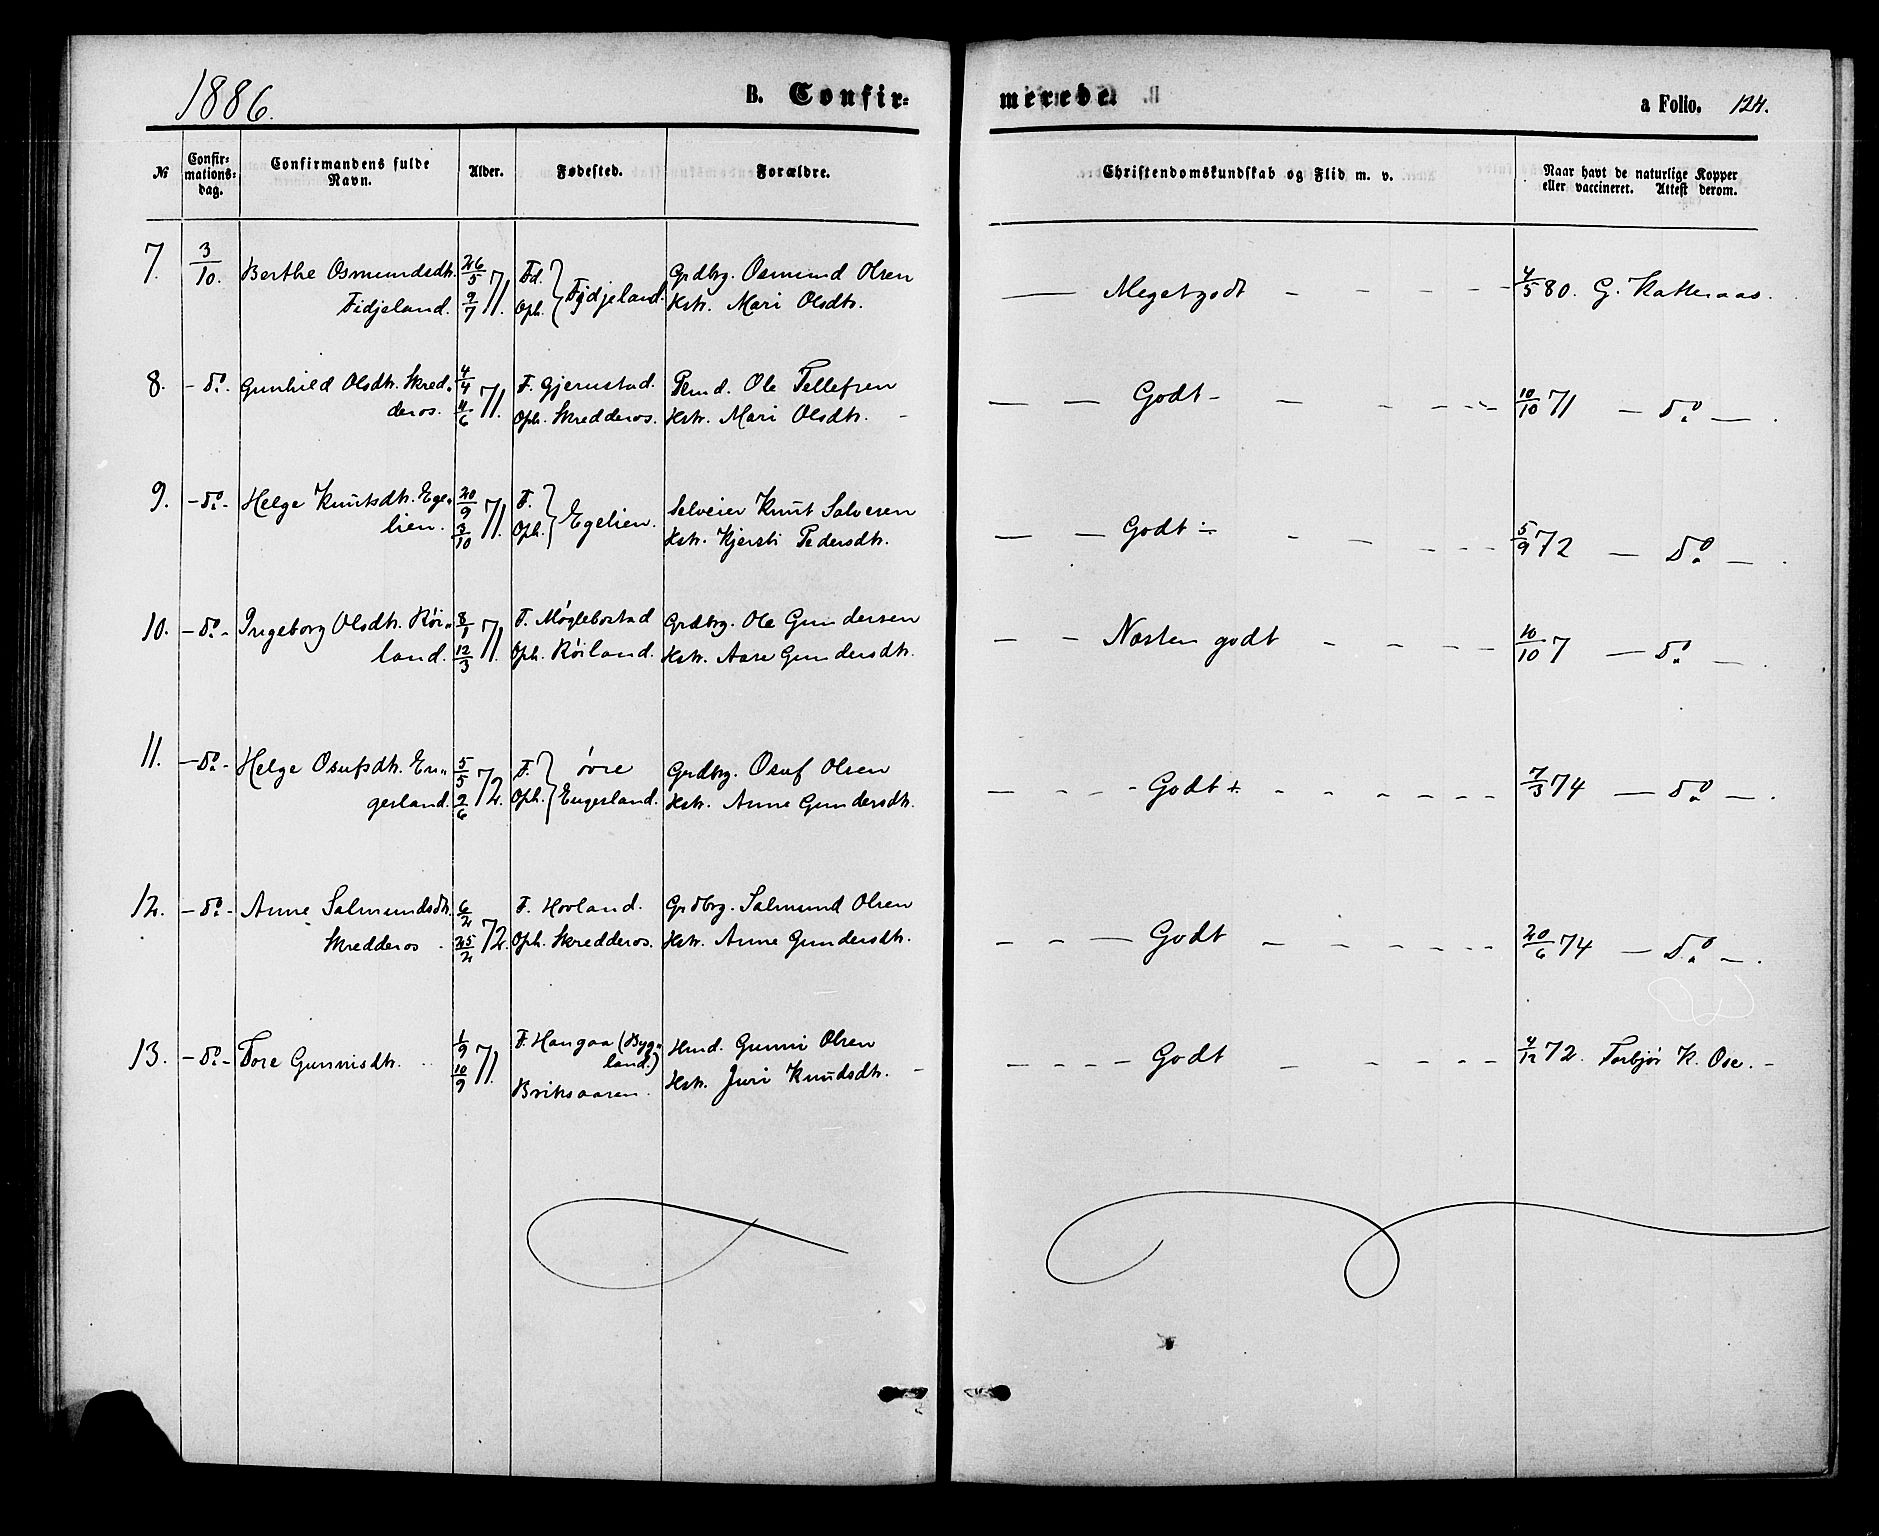 1886.
B. Confir=
merede.
a Folio. 124.
№
Confir=
mations=
dag.
Confirmandens fulde
Navn.
Alder.
Fødested.
Forældre.
Christendomskundskab og Flid m. v.
Naar havt de naturlige Kopper
eller vaccineret. Attest derom.
7. 3/10. Berthe Osmundsdtr. 26/5 71. Fd. Grdbrg. Osmund Olsen
Fidjeland. 9/7 Oph. Fidjeland. Kstr. Mari Olsdtr.
— Megetgodt - - - - - 4/5 80. G. Katteraas.
8. - do. - Gunhild Olsdtr. Skred= 4/4 71. F. Gjerustad. Plmd. Ole Tellefsen
deros. 11/6 Oph. Skredderos. Kstr. Mari Olsdtr. -
— — Godt - - - - - 10/10 71 — do — .
9. - do - Helge Knutsdtr. Ege= 20/9 71. F. Selveier Knut Salvesen
lien. 3/10 Oph. Egelien. Kstr. Kjersti Pedersdtr.
— — Godt ÷ - - - - - 5/9 72 — do — .
10. - do - Ingeborg Olsdtr. Røi= 8/1 71. F. Møglebostad Grdbrg. Ole Gundersen
land. 12/3 Oph. Røiland. Kstr. Aase Gundersdtr.
— - Næsten godt - - - - - 10/10 7 — do — .
11. - do - Helge Osufsdtr. En= 5/5 72. F. øvre Grdbrg. Osuf Olsen
gesland. 2/6 Oph. Engesland. Kstr. Anne Gundersdtr.
— - - - Godt + - - - - - - 7/3 74 — do — .
12. - do - Anne Salmundsdtr. 6/2 72. F. Hovland. Grdbrg. Salmund Olsen
Skredderos. 25/2 Oph. Skredderos. Kstr. Anne Gundersdtr.
- - — Godt - - - - - 20/6 74 — do — .
13. - do - Tore Gunnisdtr. 1/9 71. F. Haugaa (Byg=
land.) Hmd. Gunni Olsen
10/9 Briksaasen. Kstr. Juri Knudsdtr. -
- - - - Godt - - - - - 4/12 72. Torbjør K. Ose. -